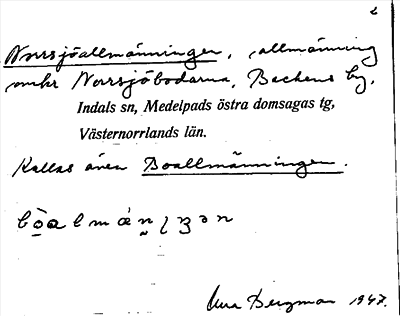 Norrsjöallmänningen, allmänning
omkr Norrsjöbodarna, Backens by,
Indals sn, Medelpads östra domsagas tg,
Västernorrlands län.
Kallas även Boallmänningen.
Bergman 1947.